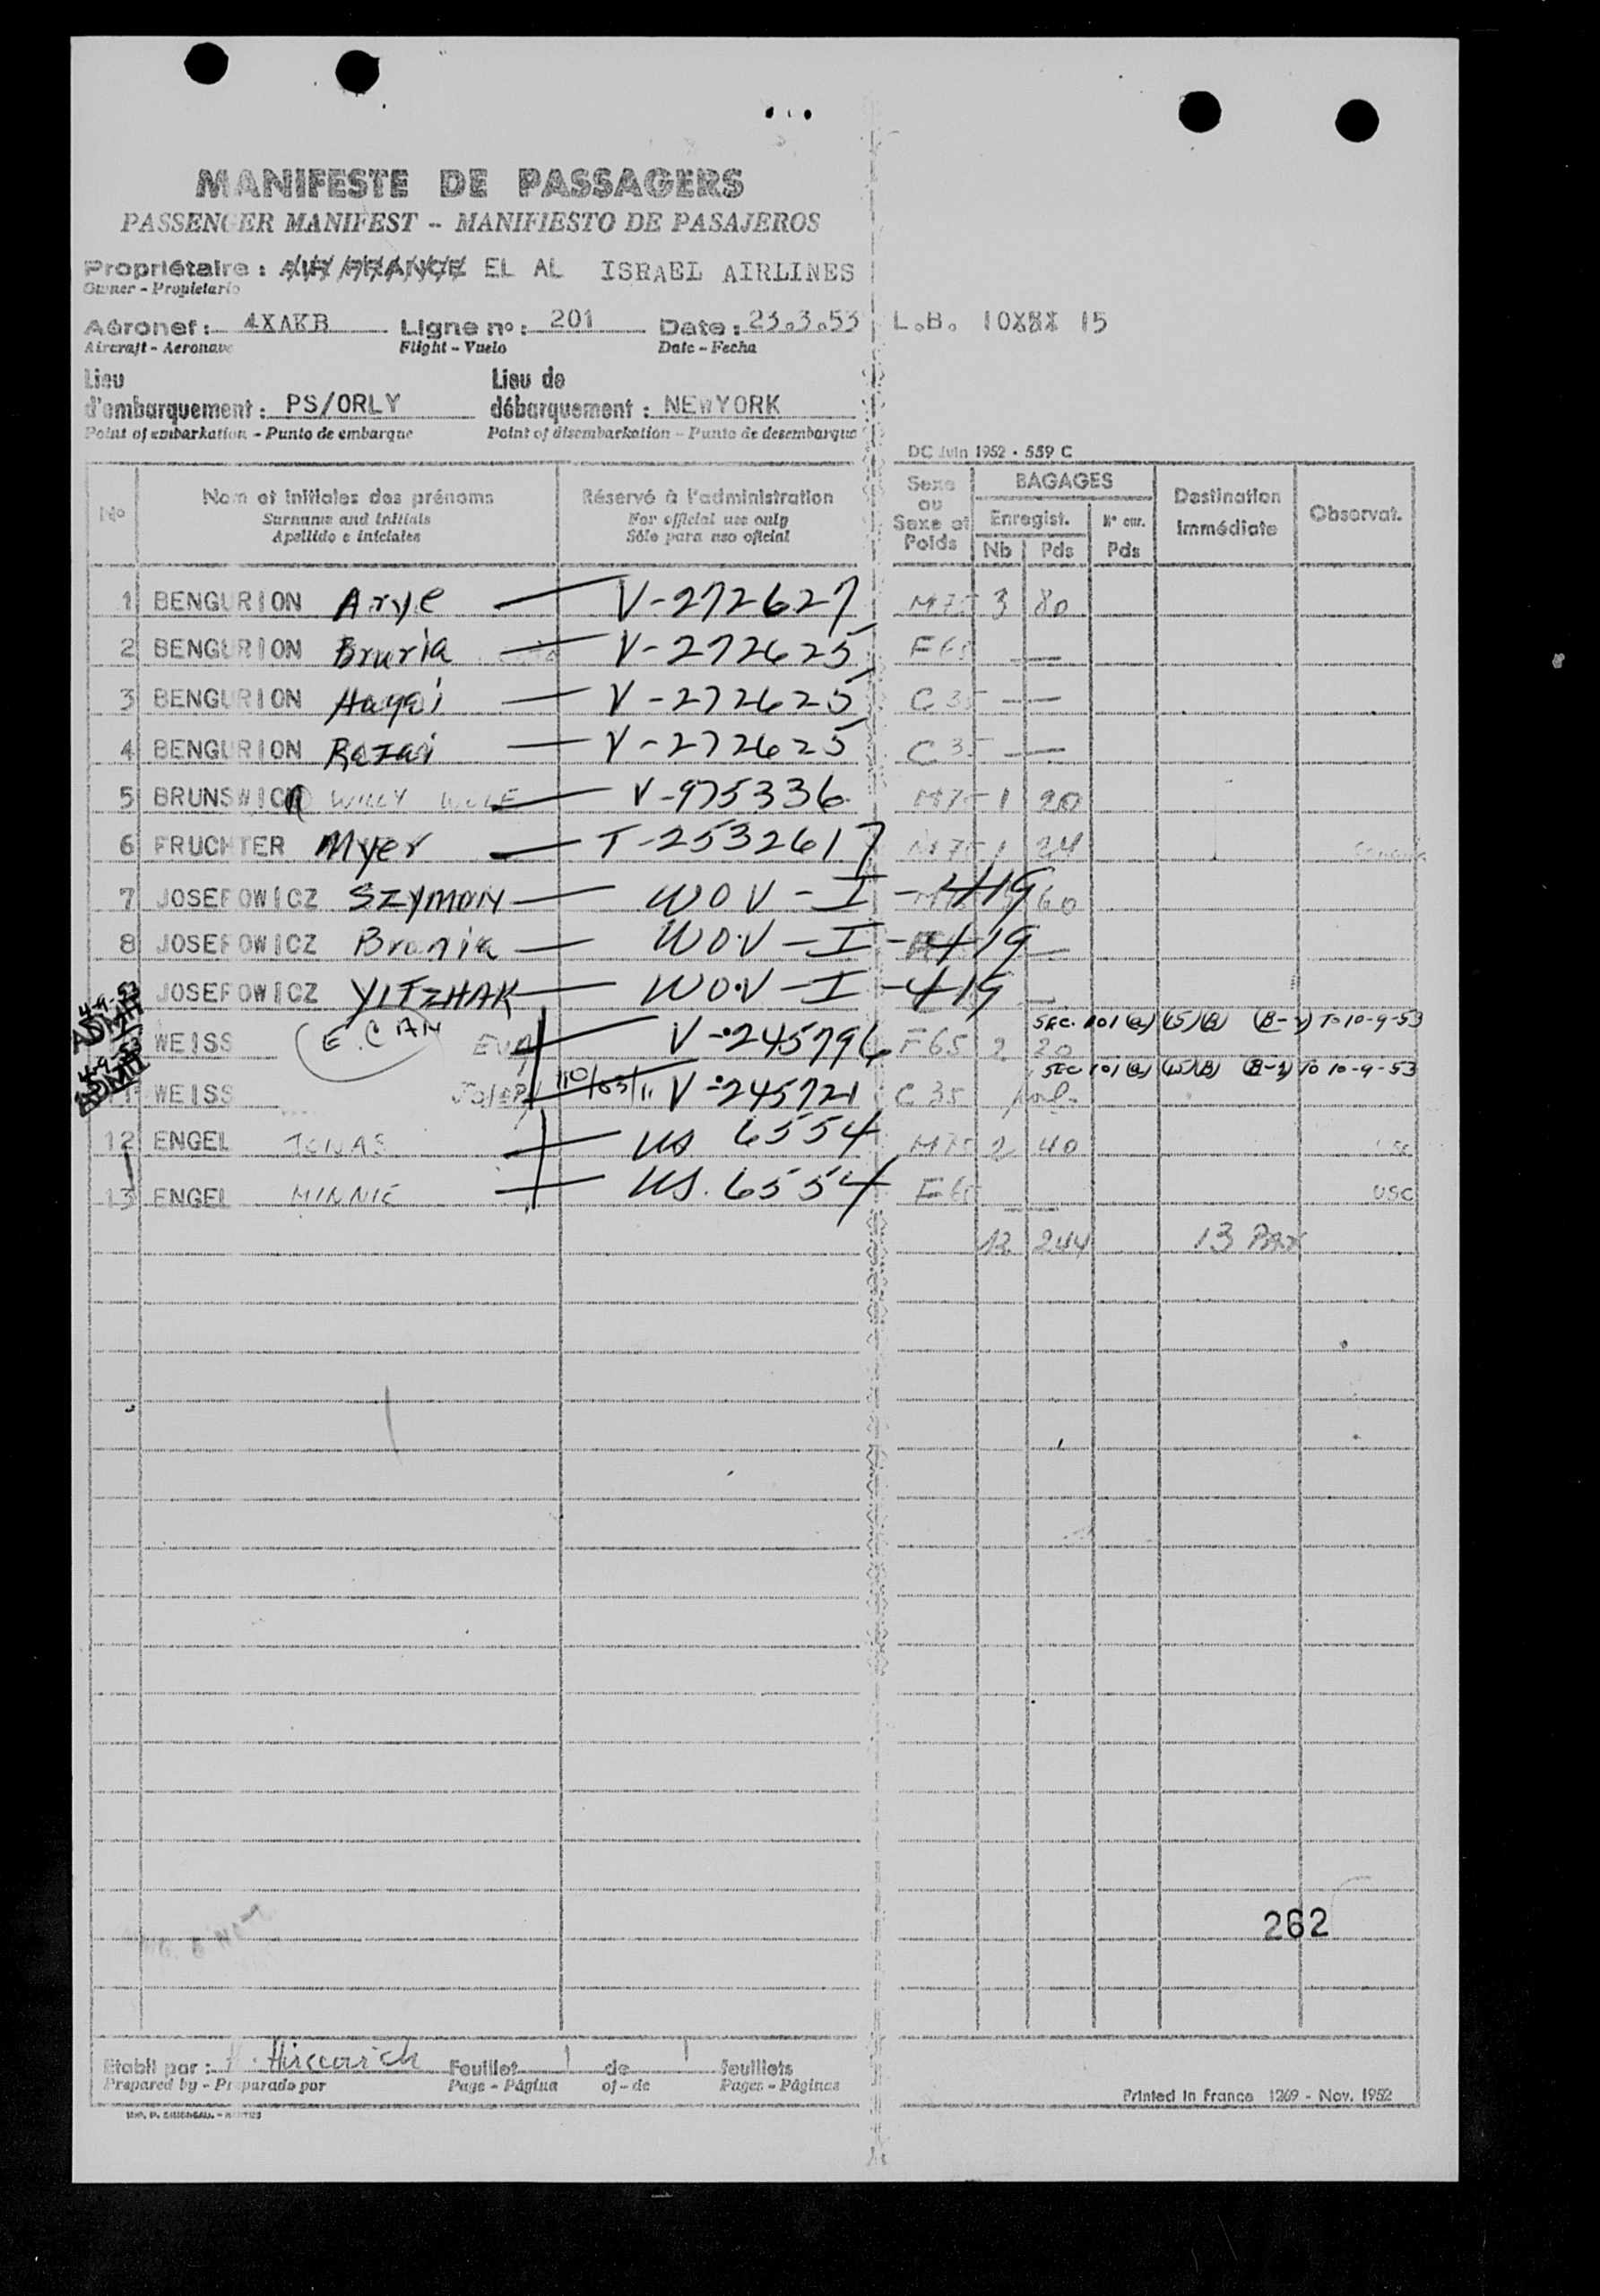 MANIFESTE DE PASSAGERS
PASSENGER MANIFEST - MANIFIESTO DE PASAJEROS
Propriétaire : AIR FRANCE EL AL ISRAEL AIRLINES
Owner - Propietario
Aéronef : 4XAKB Ligne no : 201 Date : 23.3.53 L.B. 10XXX 15
Aircraft - Aeronave Flight - Vuelo Date - Fecha
Lieu Lieu de
d'embarquement : PS/ORLY débarquement : NEWYORK
Point of embarkation - Punto de embarque Point of disembarkation - Punto de desembarque
DC Juin 1952 - 559 C
No Nom et initiales des prénoms Réservé à l'administration Sexe ou Sexe et Poids BAGAGES Destination Immédiate Observat.
Surname and initials For official use only Enregist. N° cur.
Apellido e iniciales Sólo para uso oficial Nb Pds Pds
1 BENGURION Arye V-272627 M75 3 80
2 BENGURION Bruria V-272625 F65 —
3 BENGURION Hagai V-272625 C 35 —
4 BENGURION V-272625 C 35 —
5 BRUNSWICK WILLY V-975336 M75 1 20
6 FRUCHTER Myer T-2532617 M75 1 24
7 JOSEFOWICZ SZYMON WOV-I-419 60
8 JOSEFOWICZ Bronia WOV-I-419 —
JOSEFOWICZ YITZHAK WOV-I-419 —
4-9-53 ADMIT SEC. 101(a)(15)(B) (B-2) TO 10-9-53
WEISS E. CAN EVA V-245796 F65 2 20
4-9-53 ADMIT SEC 101(a)(15)(B) (B-2) TO 10-9-53
11 WEISS V-245721 C 35
12 ENGEL JONAS US 6554 M75 2 40 USC
13 ENGEL MINNIE US. 6554 F65 USC
12 244 13 Pax
262
Etabli par : Feuillet 1 de 1 feuillets
Prepared by - Preparado por Page - Página of - de Pages - Páginas
Printed in France 1269 - Nov. 1952